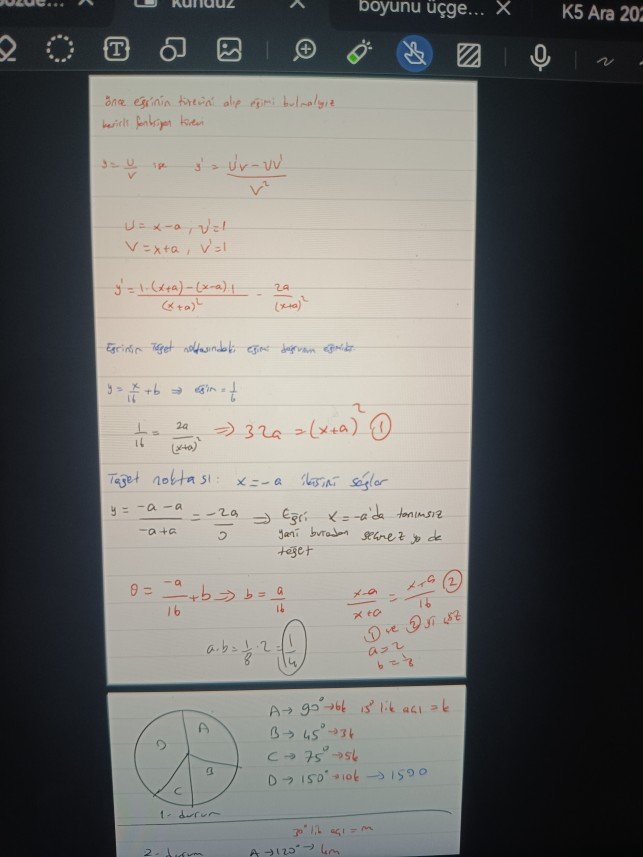 kunduz
boyunu üçge...
K5 Ara 202
Önce eğrinin türevini alıp eğimi bulmalıyız
fonksiyon türevi
y = U/V ise y' = U'V - UV'/V²
U = x-a, U'=1
V = x+a, V'=1
y' = 1·(x+a) - (x-a)·1/(x+a)² = 2a/(x+a)²
Eğrinin Teğet noktasındaki eğimi doğrunun eğimidir
y = x/16 + b ⇒ eğim = 1/6
1/16 = 2a/(x+a)² ⇒ 32a = (x+a)² ①
Teğet noktası: x = -a ikisini sağlar
y = -a-a/-a+a = -2a/0 ⇒ Eğri x = -a'da tanımsız
yani buradan geçmez ya da
teğet
0 = -a/16 + b ⇒ b = a/16
x-a/x+a = x+a/16 ②
① ve ② yi çöz
a = 2
b = 1/8
a·b = 1/8 · 2 = 1/4
A → 90° → 6k 15° lik açı = k
B → 45° → 3k
C → 75° → 5k
D → 150° → 10k → 1500
D
A
B
C
1. durum
30° lik açı = m
2. durum A → 120° →